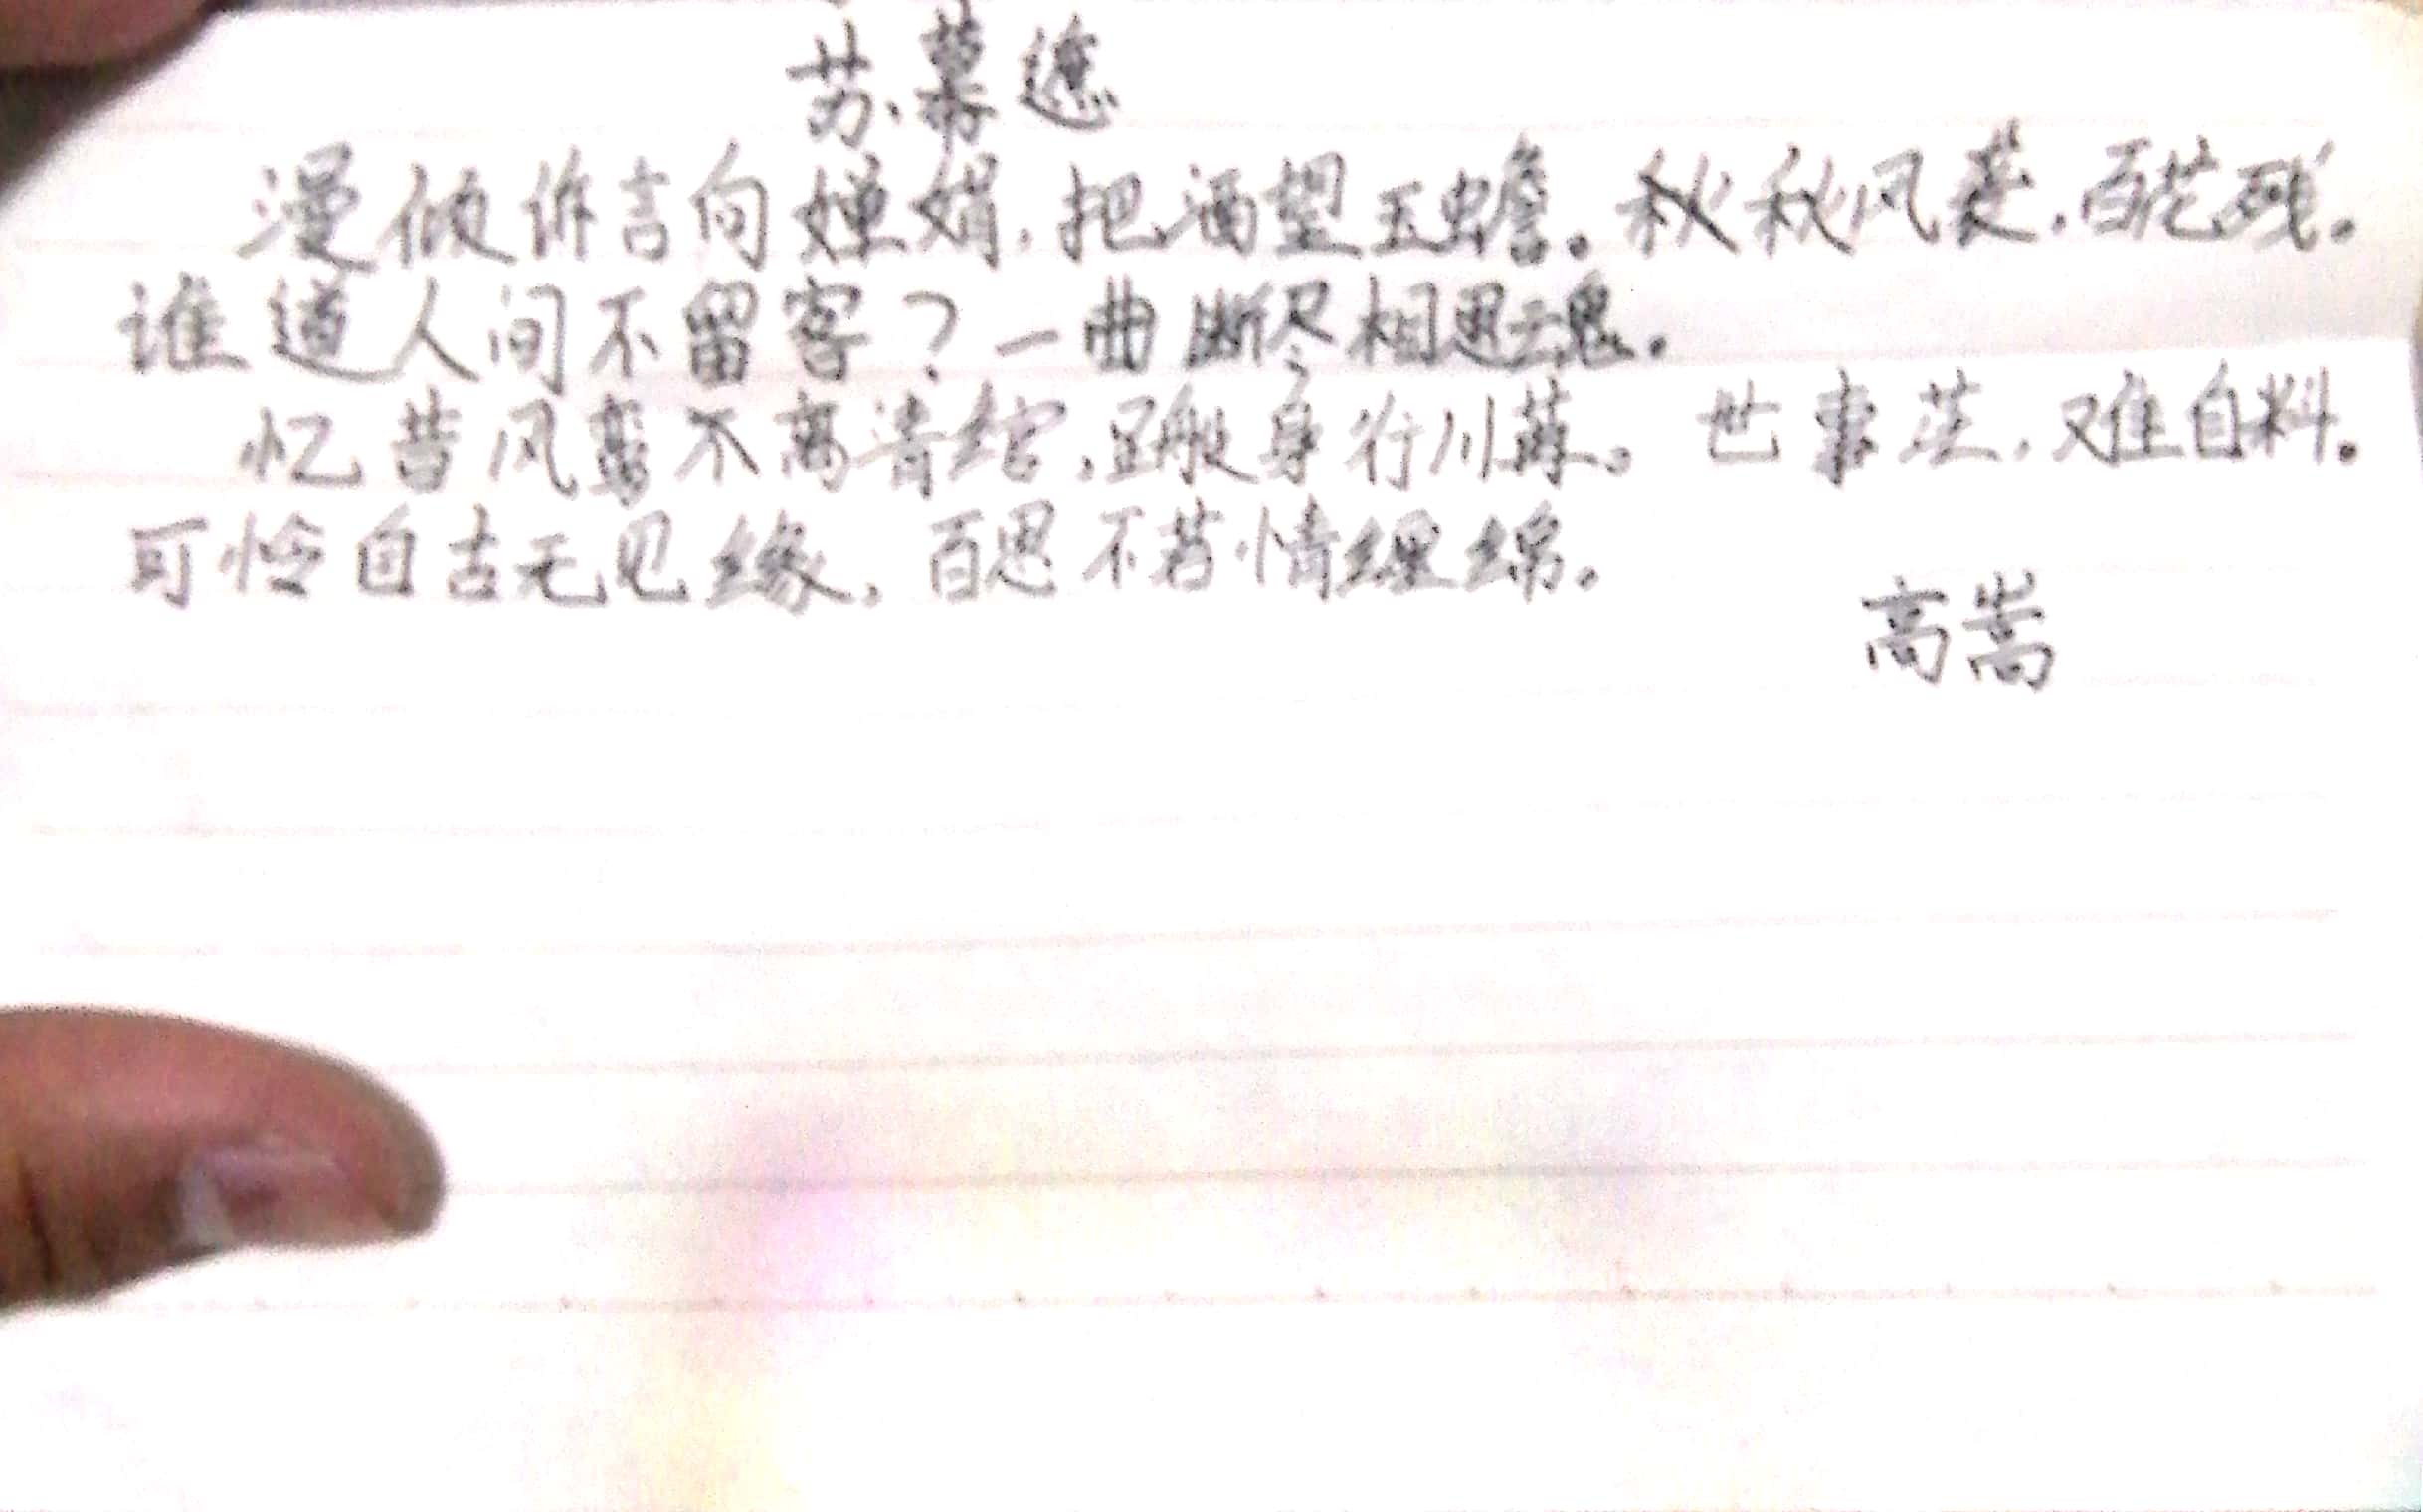 苏幕遮
漫倾诉言向婵娟，把酒望玉蟾。秋秋风,百花残。
谁道人间不留客？一曲断尽相思魂。
忆昔风鸾不离清绾，身行川。世事茫，难自料。
可怜自古无见缘，百思不若情缠绵。
高嵩